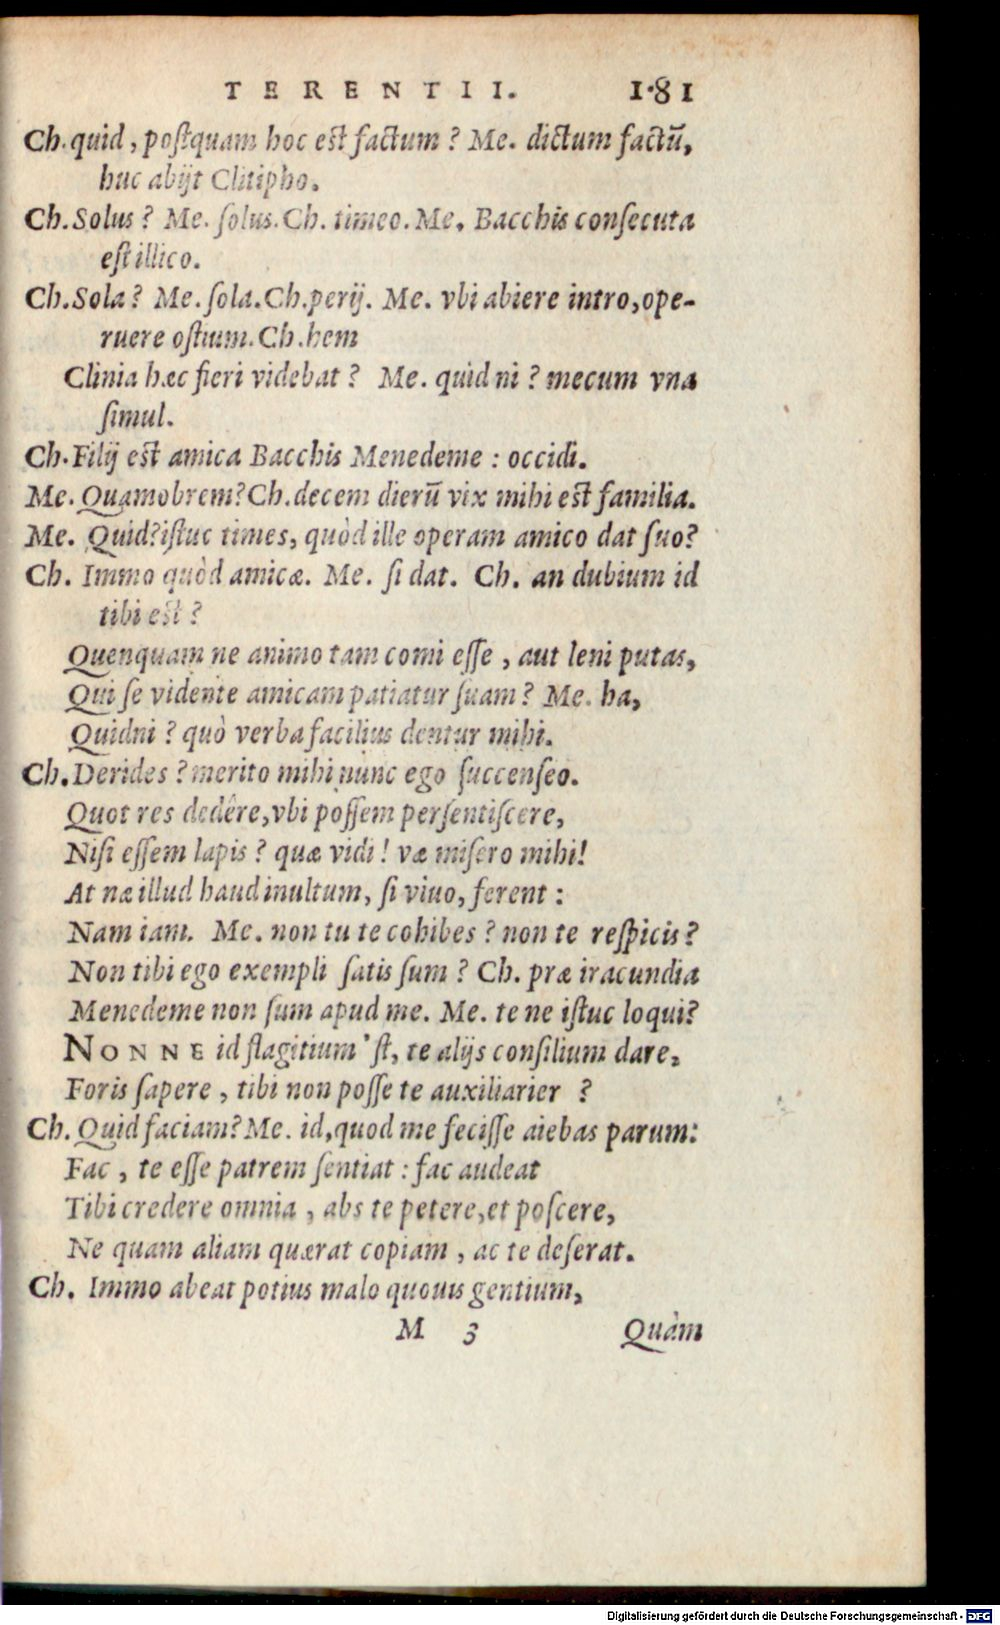 TERENTII. 181
Ch. quid, postquam hoc est factum? Me. dictum factū,
huc abijt Clitipho.
Ch. Solus? Me. solus. Ch. timeo. Me. Bacchis consecuta
est illico.
Ch. Sola? Me. sola. Ch. perij. Me. vbi abiere intro, ope-
ruere ostium. Ch. hem
Clinia hæc fieri videbat? Me. quid ni? mecum vna
simul.
Ch. Filij est amica Bacchis Menedeme: occidi.
Me. Quamobrem? Ch. decem dierū vix mihi est familia.
Me. Quid? istuc times, quòd ille operam amico dat suo?
Ch. Immo quòd amicæ. Me. si dat. Ch. an dubium id
tibi est?
Quenquam ne animo tam comi esse, aut leni putas,
Qui se vidente amicam patiatur suam? Me. ha,
Quidni? quò verba facilius dentur mihi.
Ch. Derides? merito mihi nunc ego succenseo.
Quot res dedêre, vbi possem persentiscere,
Nisi essem lapis? quæ vidi! væ misero mihi!
At næ illud haud inultum, si viuo, ferent:
Nam iam. Me. non tu te cohibes? non te respicis?
Non tibi ego exempli satis sum? Ch. præ iracundia
Menedeme non sum apud me. Me. te ne istuc loqui?
NONNE id flagitium'st, te alijs consilium dare,
Foris sapere, tibi non posse te auxiliarier?
Ch. Quid faciam? Me. id, quod me fecisse aiebas parum:
Fac, te esse patrem sentiat: fac audeat
Tibi credere omnia, abs te petere, et poscere,
Ne quam aliam quærat copiam, ac te deserat.
Ch. Immo abeat potius malo quouis gentium,
M 3 Quàm
Digitalisierung gefördert durch die Deutsche Forschungsgemeinschaft - DFG